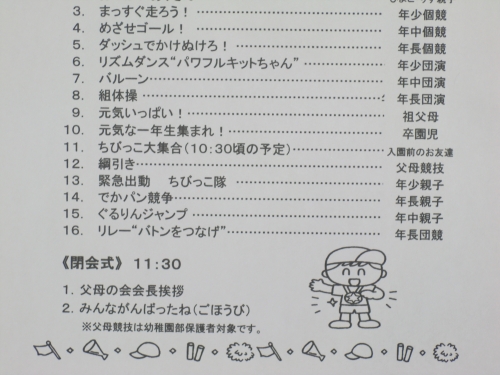 3. まっすぐ走ろう！ 年少個競
4. めざせゴール！ 年中個競
5. ダッシュでかけぬけろ！ 年長個競
6. リズムダンス“パワフルキットちゃん” 年少団演
7. バルーン 年中団演
8. 組体操 年長団演
9. 元気いっぱい！ 祖父母
10. 元気な一年生集まれ！ 卒園児
11. ちびっこ大集合（10:30頃の予定） 入園前のお友達
12. 綱引き 父母競技
13. 緊急出動　ちびっこ隊 年少親子
14. でかパン競争 年長親子
15. ぐるりんジャンプ 年中親子
16. リレー“バトンをつなげ” 年長団競
《閉会式》 11:30
1. 父母の会会長挨拶
2. みんながんばったね（ごほうび）
※父母競技は幼稚園部保護者対象です。